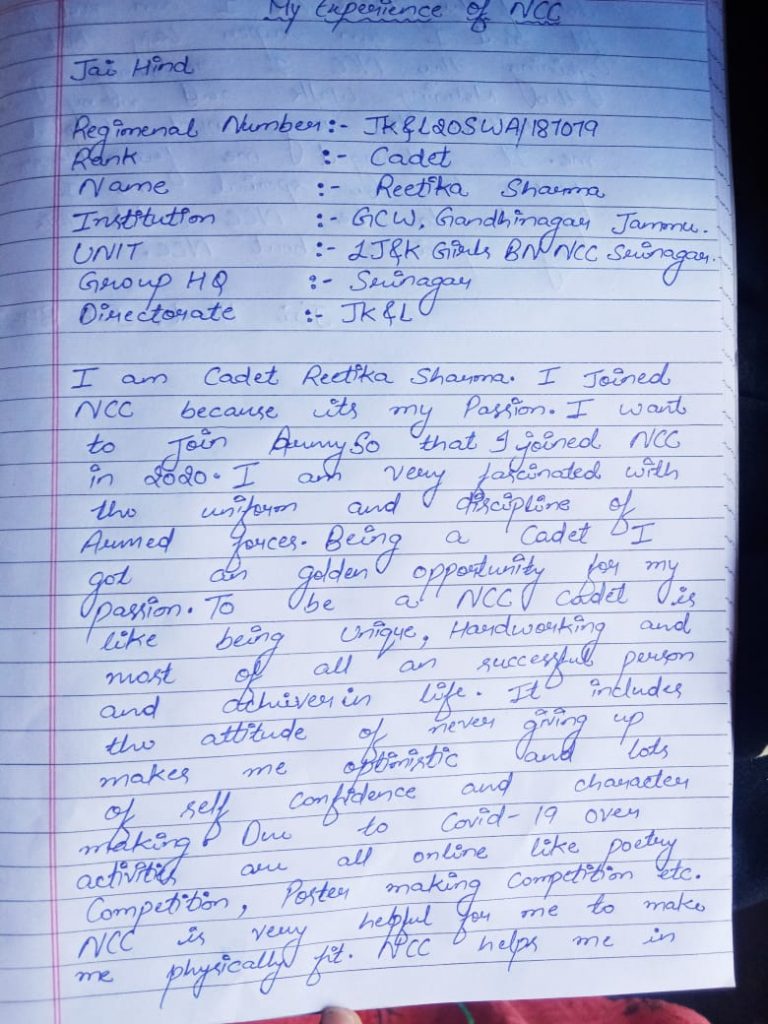 My Experience of NCC
Jai Hind
Regimenal Number:- JK&L20SWA/187079
Rank :- Cadet
Name :- Reetika Sharma
Institution :- GCW, Gandhinagar Jammu.
UNIT :- 1J&K Girls BN NCC Srinagar.
Group HQ :- Srinagar
Directorate :- JK&L
I am Cadet Reetika Sharma. I Joined
NCC because its my Passion. I want
to Join Army So that I joined NCC
in 2020. I am very fascinated with
the uniform and discipline of
Armed forces. Being a Cadet I
got an golden opportunity for my
passion. To be a NCC Cadet is
like being Unique, Hardworking and
most of all an successful person
and achiver in life. It includes
the attitude of never giving up
makes me optimistic and lots
of self confidence and character
making. Due to Covid-19 over
activities are all online like poetry
Competition, Poster making Competition etc.
NCC is very helpful for me to make
me physically fit. NCC helps me in